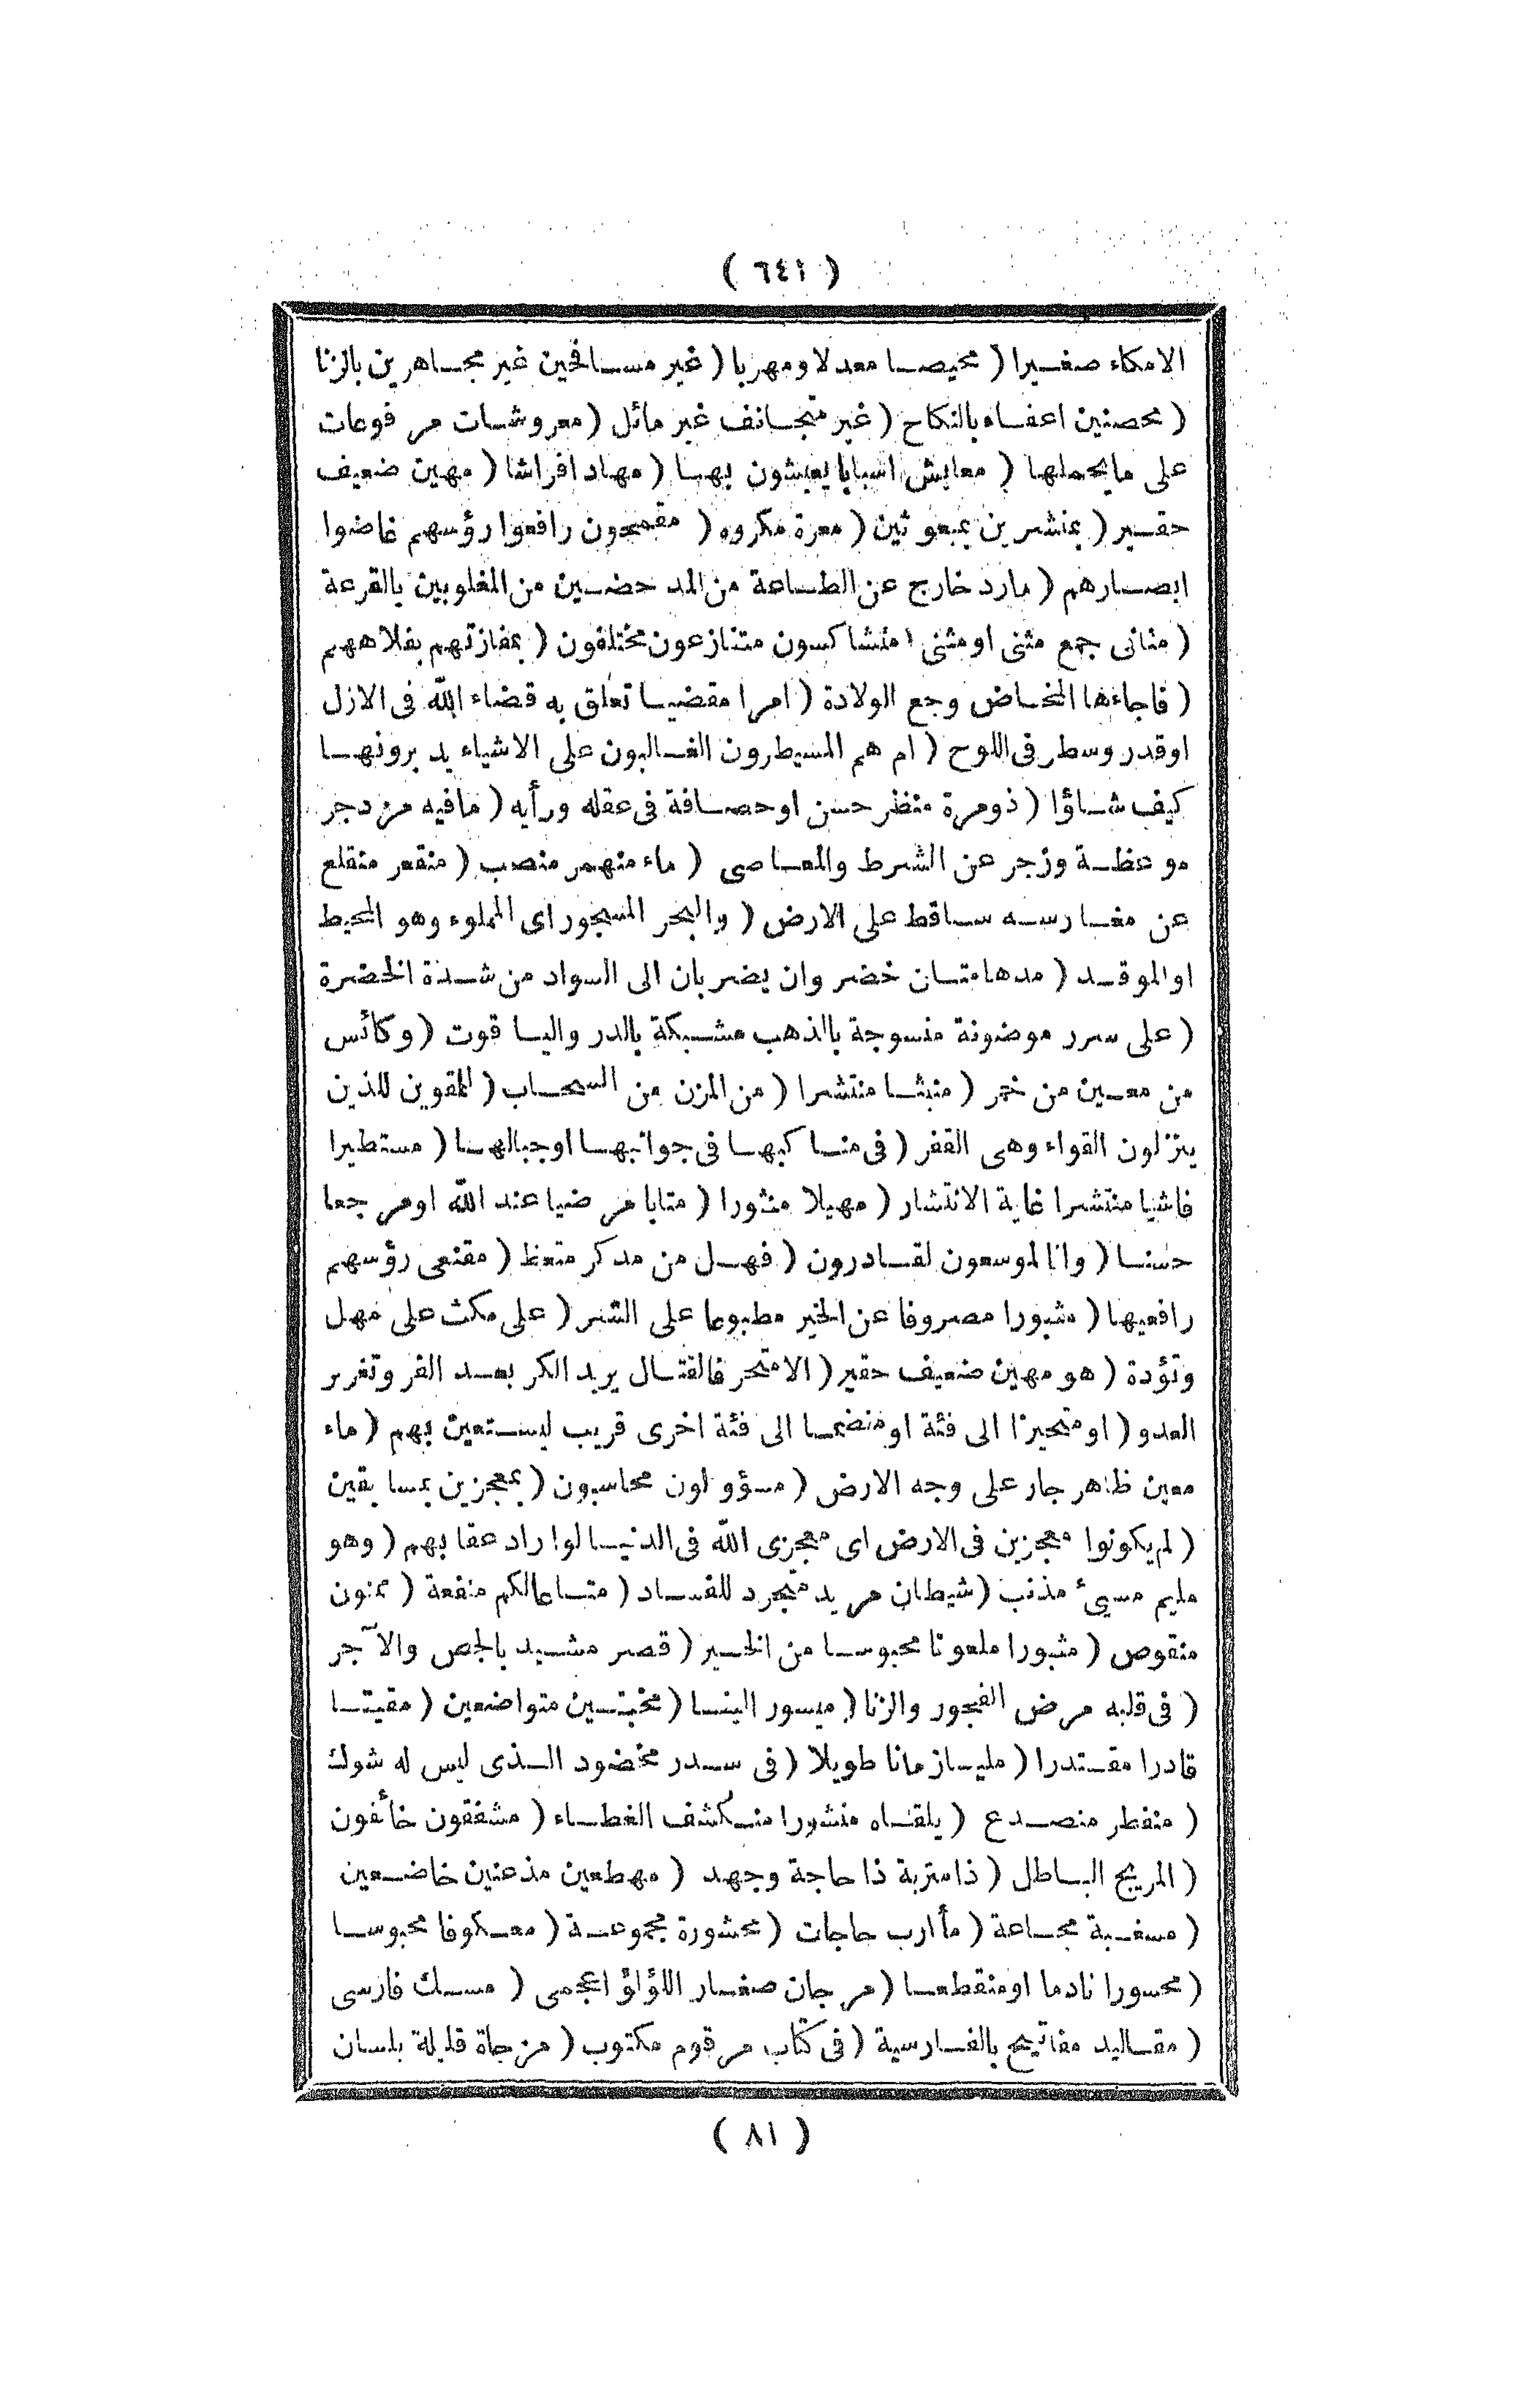 ( ٦٤١ )
الامكاء صغيرا ( محيصا معدلا ومهربا ( غير مسافحين غير مجاهرين بالزنا
( محصنين اعفاء بالنكاح ( غير متجانف غير مائل ( معروشات مرفوعات
على مايحملها ( معايش اسبابا يعيشون بها ( مهادا فراشا ( مهين ضعيف
حقير ( بمنشرين بمبعوثين ( معرة مكروه ( مقمحون رافعوا رؤسهم غاضوا
ابصارهم ( مارد خارج عن الطاعة من المدحضين من المغلوبين بالقرعة
( مثانى جمع مثنى او مثنى ( متشاكسون متنازعون مختلفون ( بمفازتهم بفلاحهم
( فاجاءها المخاض وجع الولادة ( امرا مقضيا تعلق به قضاء الله فى الازل
اوقدر وسطر فى اللوح ( ام هم المسيطرون الغالبون على الاشياء يدبرونها
كيف شاؤا ( ذومرة منظر حسن اوحصافة فى عقله ورأيه ( مافيه مزدجر
موعظة وزجر عن الشرط والمعاصى ( ماء منهمر منصب ( منقعر منقلع
عن مغارسه ساقط على الارض ( والبحر المسجور اى المملوء وهو المحيط
اوالموقد ( مدهامتان خضروان يضربان الى السواد من شدة الخضرة
( على سرر موضونة منسوجة بالذهب مشبكة بالدر والياقوت ( وكائس
من معين من خمر ( منبثا منتشرا ( من المزن من السحاب ( للمقوين للذين
ينزلون القواء وهى القفر ( فى مناكبها فى جوانبها اوجبالها ( مستطيرا
فاشيا منتشرا غاية الانتشار ( مهيلا منثورا ( متابا مرضيا عند الله اومرجعا
حسنا ( وانا لموسعون لقادرون ( فهل من مدكر متعظ ( مقنعى رؤسهم
رافعيها ( مثبورا مصروفا عن الخير مطبوعا على الشر ( على مكث على مهل
وتؤدة ( هو مهين ضعيف حقير ( الا متحرفا لقتال يريد الكر بعد الفر وتغرير
العدو ( او متحيزا الى فئة او منضما الى فئة اخرى قريب ليستعين بهم ( ماء
معين ظاهر جار على وجه الارض ( مسؤولون محاسبون ( بمعجزين بمسابقين
( لم يكونوا معجزين فى الارض اى معجزى الله فى الدنيا لواراد عقابهم ( وهو
مليم مسيئ مذنب ( شيطان مريد متجرد للفساد ( متاعا لكم منفعة ( ممنون
منقوص ( مثبورا ملعونا محبوسا من الخير ( قصر مشيد بالجص والآجر
( فى قلبه مرض الفجور والزنا ( ميسور الينا ( مخبتين متواضعين ( مقيتا
قادرا مقتدرا ( مليا زمانا طويلا ( فى سدر مخضود الذى ليس له شوك
( منفطر منصدع ( يلقاه منشورا منكشف الغطاء ( مشفقون خائفون
( المريج الباطل ( ذا متربة ذا حاجة وجهد ( مهطعين مذعنين خاضعين
( مسغبة مجاعة ( مأارب حاجات ( محشورة مجموعة ( معكوفا محبوسا
( محسورا نادما اومنقطعا ( مرجان صغار اللؤلؤ اعجمى ( مسك فارسى
( مقاليد مفاتيح بالفارسية ( فى كتاب مرقوم مكتوب ( مزجاة قليلة بلسان
( ٨١ )